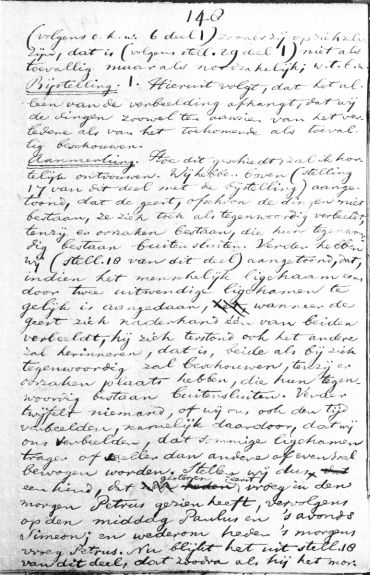 148
(volgens a.k.w. 6 deel 1) zooals zij op zich zelve
zijn, dat is (volgens stell. 29 deel 1) niet als
toevallig maar als noodzakelijk; w.t.b.w.
Bijstelling 1. Hieruit volgt, dat het al-
leen van de verbeelding afhangt, dat wij
de dingen zoowel ten aanzien van het ver-
ledene als van het toekomende als toeval-
tig beschouwen.
Aanmerking. Hoe dit geschiedt, zal ik kor-
telijk ontvouwen. Wij hebben boven (stelling
17 van dit deel met de bijstelling) aange-
toond, dat de geest, ofschoon de dingen niet
bestaan, ze zich toch als tegenwoordig verbeeldt,
tenzij er oorzaken bestaan, die hun tegenwoor-
dig bestaan buitensluiten. Verder hebben
wij (stell. 18 van dit deel) aangetoond, dat,
indien het menschelijk ligchaam eens
door twee uitwendige ligchamen te
gelijk is aangedaan, wanneer de
geest zich naderhand één van beiden
verbeeldt, hij zich terstond ook het andere
zal herinneren, dat is, beide als bij zich
tegenwoordig zal beschouwen, tenzij er
oorzaken plaats hebben, die hun tegen-
woordig bestaan buitensluiten. Verder
twijfelt niemand, of wij ons ook den tijd
verbeelden, namelijk daardoor, dat wij
ons verbeelden, dat sommige ligchamen
trager of sneller dan andere of even snel
bewogen worden. Stellen wij dus
een kind, dat gisteren eerst vroeg in den
morgen Petrus gezien heeft, vervolgens
op den middag Paulus en 's avonds
Simeon; en wederom heden 's morgens
vroeg Petrus. Nu blijkt het uit stell. 18
van dit deel, dat zoodra als hij het mor-